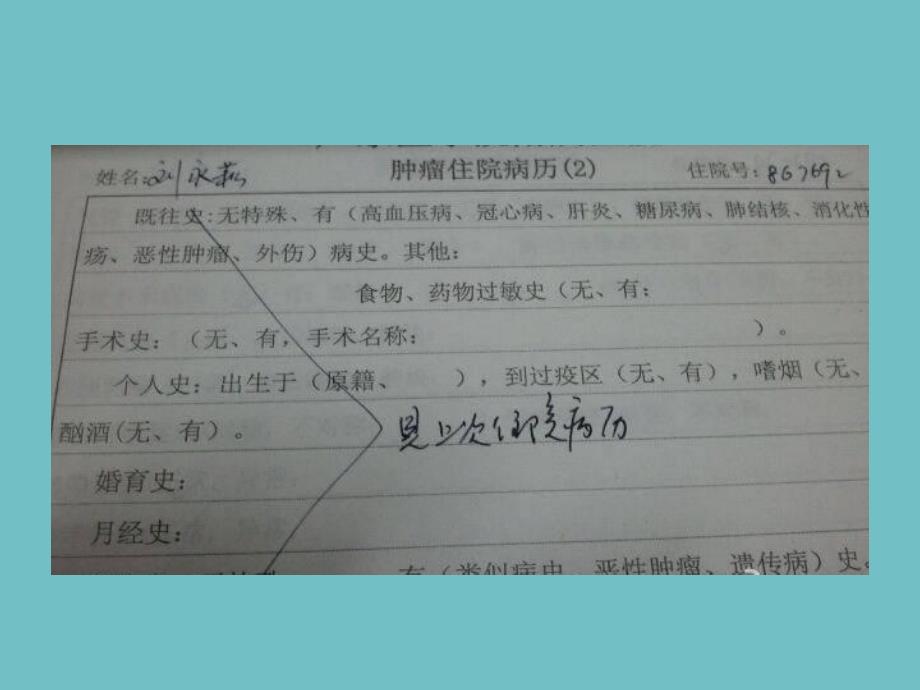 肿瘤住院病历(2)
姓名:刘永 住院号:867692
既往史:无特殊、有（高血压病、冠心病、肝炎、糖尿病、肺结核、消化性
疡、恶性肿瘤、外伤）病史。其他:
食物、药物过敏史（无、有:
手术史:（无、有，手术名称: ）。
个人史: 出生于（原籍、 ），到过疫区（无、有），嗜烟（无、
酗酒(无、有）。
见上次住院病历
婚育史:
月经史:
有（类似病史、恶性肿瘤、遗传病）史。